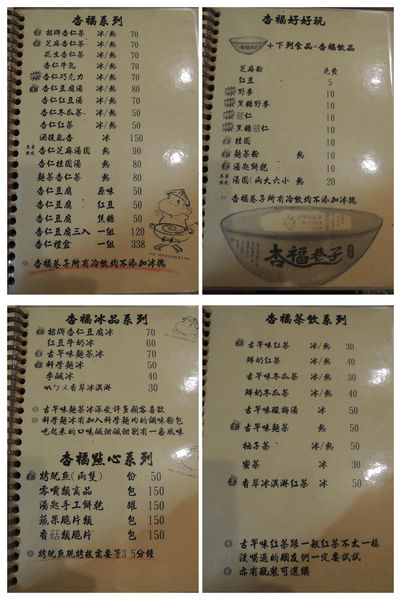 杏福系列
招牌杏仁茶 冰/熱 70
芝麻杏仁茶 冰/熱 70
花生杏仁茶 冰/熱 70
杏仁牛乳 冰/熱 70
杏仁巧克力 冰/熱 70
杏仁豆腐湯 冰/熱 80
杏仁紅豆湯 冰/熱 70
杏仁冬瓜茶 冰/熱 50
杏仁紅茶 冰/熱 50
酒後亂杏 冰 150
杏仁芝麻湯圓 熱 90
杏仁桂圓湯 熱 80
麵茶杏仁茶 熱 80
杏仁豆腐 原味 50
杏仁豆腐 紅豆 50
杏仁豆腐 焦糖 50
杏仁豆腐三入 一組 120
杏仁禮盒 一組 338
◎杏福巷子所有冷飲均不添加冰塊
杏福好好玩
+下列食品=杏福飲品
芝麻粉 免費
紅豆 5
野麥 10
黑糖野麥 10
薏仁 10
黑糖薏仁 10
桂圓 10
麵茶粉 熱 10
湯匙餅乾 15
湯圓(兩大六小) 熱 20
◎杏福巷子所有冷飲均不添加冰塊
杏福巷子
杏福冰品系列
招牌杏仁豆腐冰 70
紅豆牛奶冰 60
古早味麵茶冰 70
科學麵冰 50
李鹹冰 40
叭ㄅㄨ香草冰淇淋 30
◎古早味麵茶冰深受許多顧客喜歡
◎科學麵冰有加入科學麵内的調味粉包
吃起來的口味鹹甜鹹甜別有一番風味
杏福點心系列
烤魷魚(兩隻) 份 50
零嘴類商品 包 150
湯匙手工餅乾 罐 150
蔬果脆片類 包 150
香菇脆片類 包 150
◎烤魷魚現烤故需要等3-5分鐘
杏福茶飲系列
古早味紅茶 冰/熱 30
鮮奶紅茶 冰/熱 40
古早味冬瓜茶 冰/熱 30
鮮奶冬瓜茶 冰/熱 40
古早味酸梅湯 冰 50
古早味麵茶 熱 50
柚子茶 冰/熱 50
蜜茶 冰 30
香草冰淇淋紅茶 冰 50
◎古早味紅茶跟一般紅茶不太一樣
沒喝過的朋友們一定要試試
◎亦有瓶裝可選購